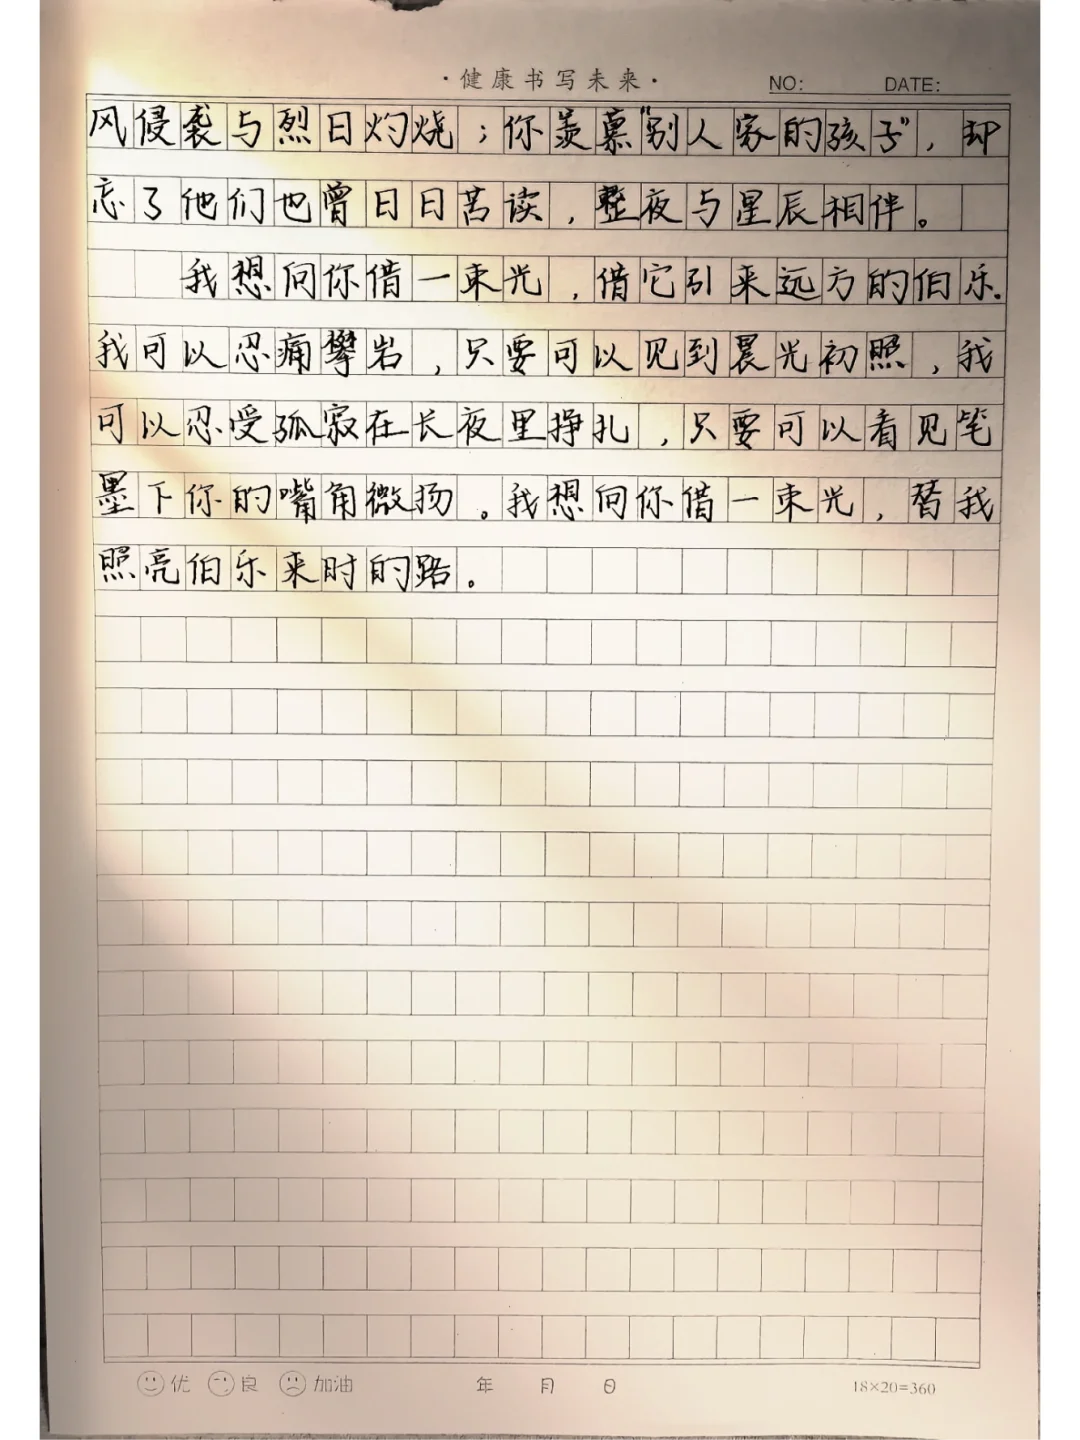 ·健康书写未来·
NO: DATE:
风侵袭与烈日灼烧；你羡慕“别人家的孩子”，却
忘了他们也曾日日苦读，整夜与星辰相伴。
我想问你借一束光，借它引来远方的伯乐。
我可以忍痛攀岩，只要可以见到晨光初照，我
可以忍受孤寂在长夜里挣扎，只要可以看见笔
墨下你的嘴角微扬。我想问你借一束光，替我
照亮伯乐来时的路。
优 良 加油 年 月 日 18×20=360